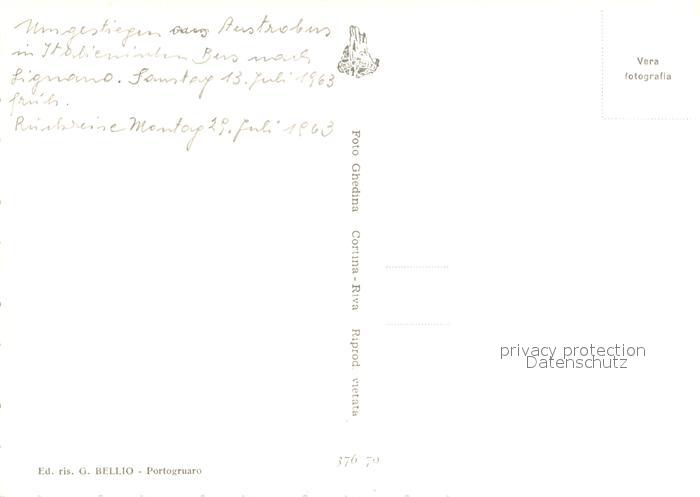 Umgestiegen aus Austrobus
in Italienischen Bus nach
Lignano. Samstag 13. Juli 1963
früh.
Rückreise Montag 29. Juli 1963
Vera
fotografia
Foto Ghedina Cortina - Riva Riprod. vietata
privacy protection
Datenschutz
376 70
Ed. ris. G. BELLIO - Portogruaro